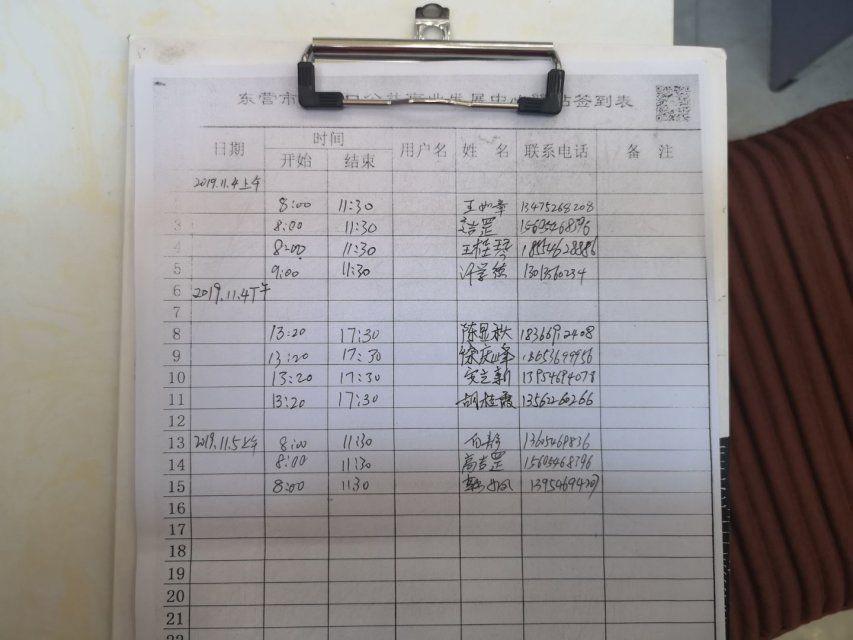 东营市 公益事业发展中心 签到表
日期 时间 用户名 姓名 联系电话 备注
开始 结束
2019.11.4上午
8:00 11:30 13475268208
3 8:00 11:30 15605468396
4 8:00 11:30 王桂琴 18554628886
5 9:00 11:30
6 2019.11.4下午
7
8 13:20 17:30 陈显秋
9 13:20 17:30 徐庆峰
10 13:20 17:30 13954694078
11 13:20 17:30 胡桂霞 13562260266
12
13 2019.11.5上午 8:00 11:30 白静
14 8:00 11:30 高吉罡 15605468396
15 8:00 11:30
16
17
18
19
20
21